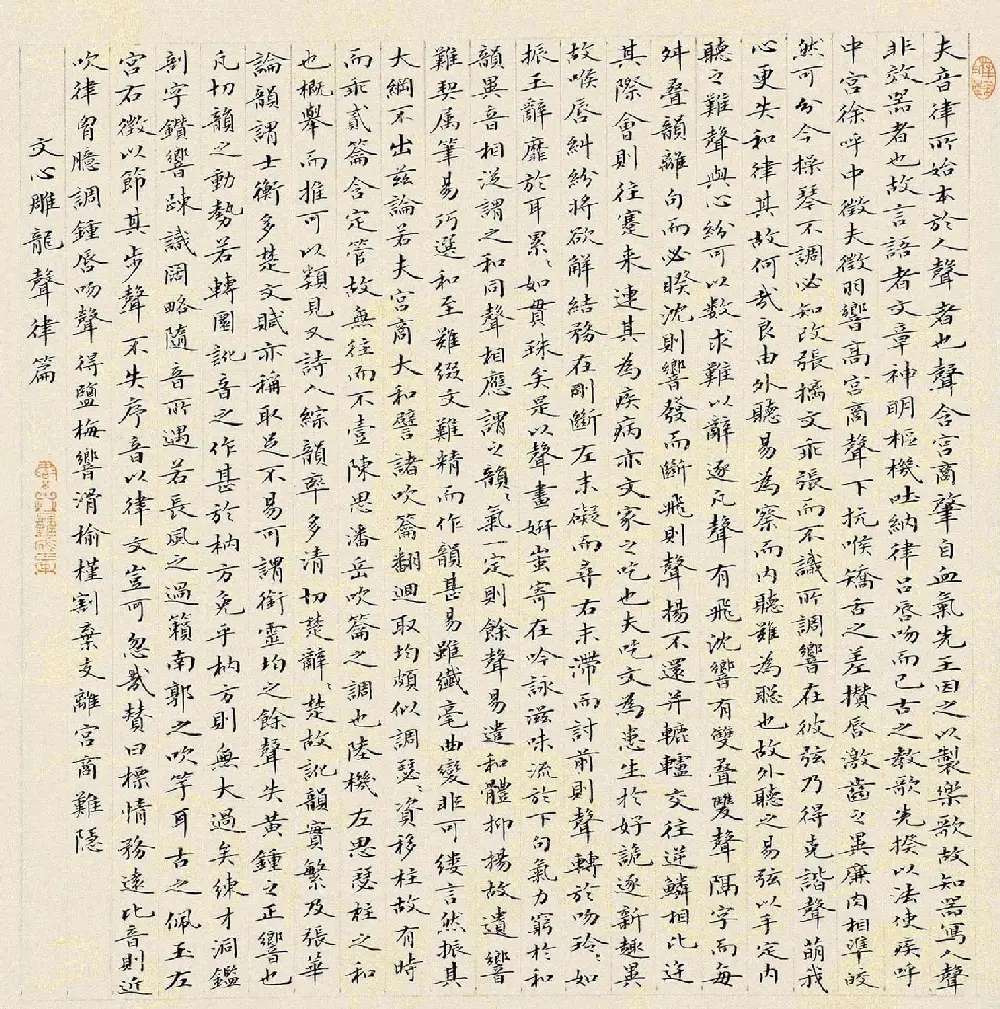 夫音律所始本於人聲者也聲含宮商肇自血氣先王因之以製樂歌故知器寫人聲
非效器者也故言語者文章神明樞機吐納律呂唇吻而已古之教歌先揆以法使疾呼
中宮徐呼中徵夫徵羽響高宮商聲下抗喉矯舌之差攢唇激齒之異廉肉相準皎
然可分今操琴不調必知改張摛文乖張而不識所調響在彼弦乃得克諧聲萌我
心更失和律其故何哉良由外聽易為察而內聽難為聰也故外聽之易弦以手定內
聽之難聲與心紛可以數求難以辭逐凡聲有飛沈響有雙疊雙聲隔字而每
舛疊韻離句而必睽沈則響發而斷飛則聲揚不還并轆轤交往逆鱗相比迕
其際會則往蹇来連其為疾病亦文家之吃也夫吃文為患生於好詭逐新趣異
故喉唇糾紛將欲解結務在剛斷左末礙而尋右末滯而討前則聲轉於吻玲〻如
振玉辭靡於耳累〻如貫珠矣是以聲畫妍蚩寄在吟詠滋味流於下句氣力窮於和
韻異音相從謂之和同聲相應謂之韻〻氣一定則餘聲易遣和體抑揚故遺響
難契属筆易巧選和至難綴文難精而作韻甚易雖纖毫曲變非可縷言然振其
大綱不出茲論若夫宮商大和譬諸吹籥翻迴取均頗似調瑟〻資移柱故有時
而乖貳籥含定管故無往而不壹陳思潘岳吹籥之調也陸機左思瑟柱之和
也概舉而推可以類見又詩人綜韻率多清切楚辭〻楚故訛韻實繁及張華
論韻謂士衡多楚文賦亦稱取足不易可謂銜靈均之餘聲失黃鍾之正響也
凡切韻之動勢若轉圜訛音之作甚於枘方免乎枘方則無大過矣練才洞鑑
剖字鑽響踈識闊略隨音所遇若長風之過籟南郭之吹竽耳古之佩玉左
宮右徵以節其步聲不失序音以律文豈可忽哉贊曰標情務遠比音則近
吹律胷臆調鍾唇吻聲得鹽梅響滑榆槿割棄支離宮商難隱
文心雕龍聲律篇